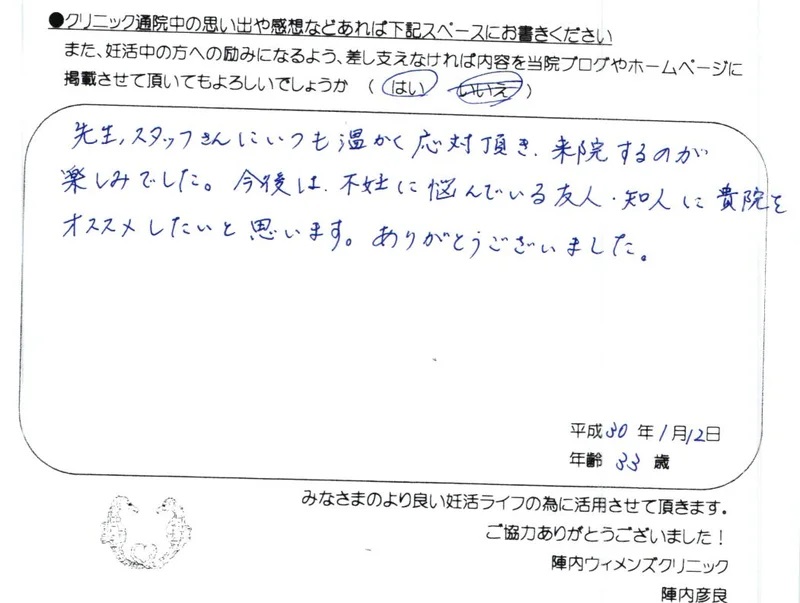 ●クリニック通院中の思い出や感想などあれば下記スペースにお書きください
また、妊活中の方への励みになるよう、差し支えなければ内容を当院ブログやホームページに
掲載させて頂いてもよろしいでしょうか （ はい いいえ ）
先生、スタッフさんにいつも温かく応対頂き、来院するのが
楽しみでした。今後は、不妊に悩んでいる友人・知人に貴院を
オススメしたいと思います。ありがとうございました。
平成30年1月12日
年齢 33 歳
みなさまのより良い妊活ライフの為に活用させて頂きます。
ご協力ありがとうございました！
陣内ウィメンズクリニック
陣内彦良